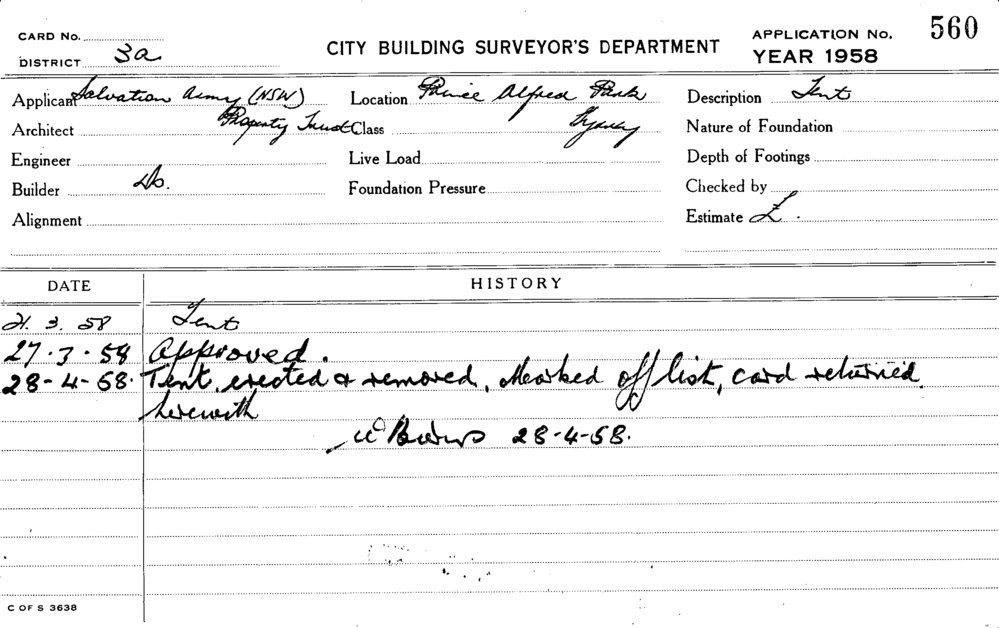 CARD No.
DISTRICT 3a
CITY BUILDING SURVEYOR'S DEPARTMENT
APPLICATION No. 560
YEAR 1958
Applicant Salvation Army (NSW) Property Trust
Location Prince Alfred Park Sydney
Description Tent
Architect
Class
Nature of Foundation
Engineer
Live Load
Depth of Footings
Builder Do.
Foundation Pressure
Checked by
Alignment
Estimate £ .
DATE HISTORY
21. 3. 58 Tent
27.3.58 Approved.
28-4-58. Tent, erected & removed, Marked off list, card returned
herewith
28-4-58.
C OF S 3638